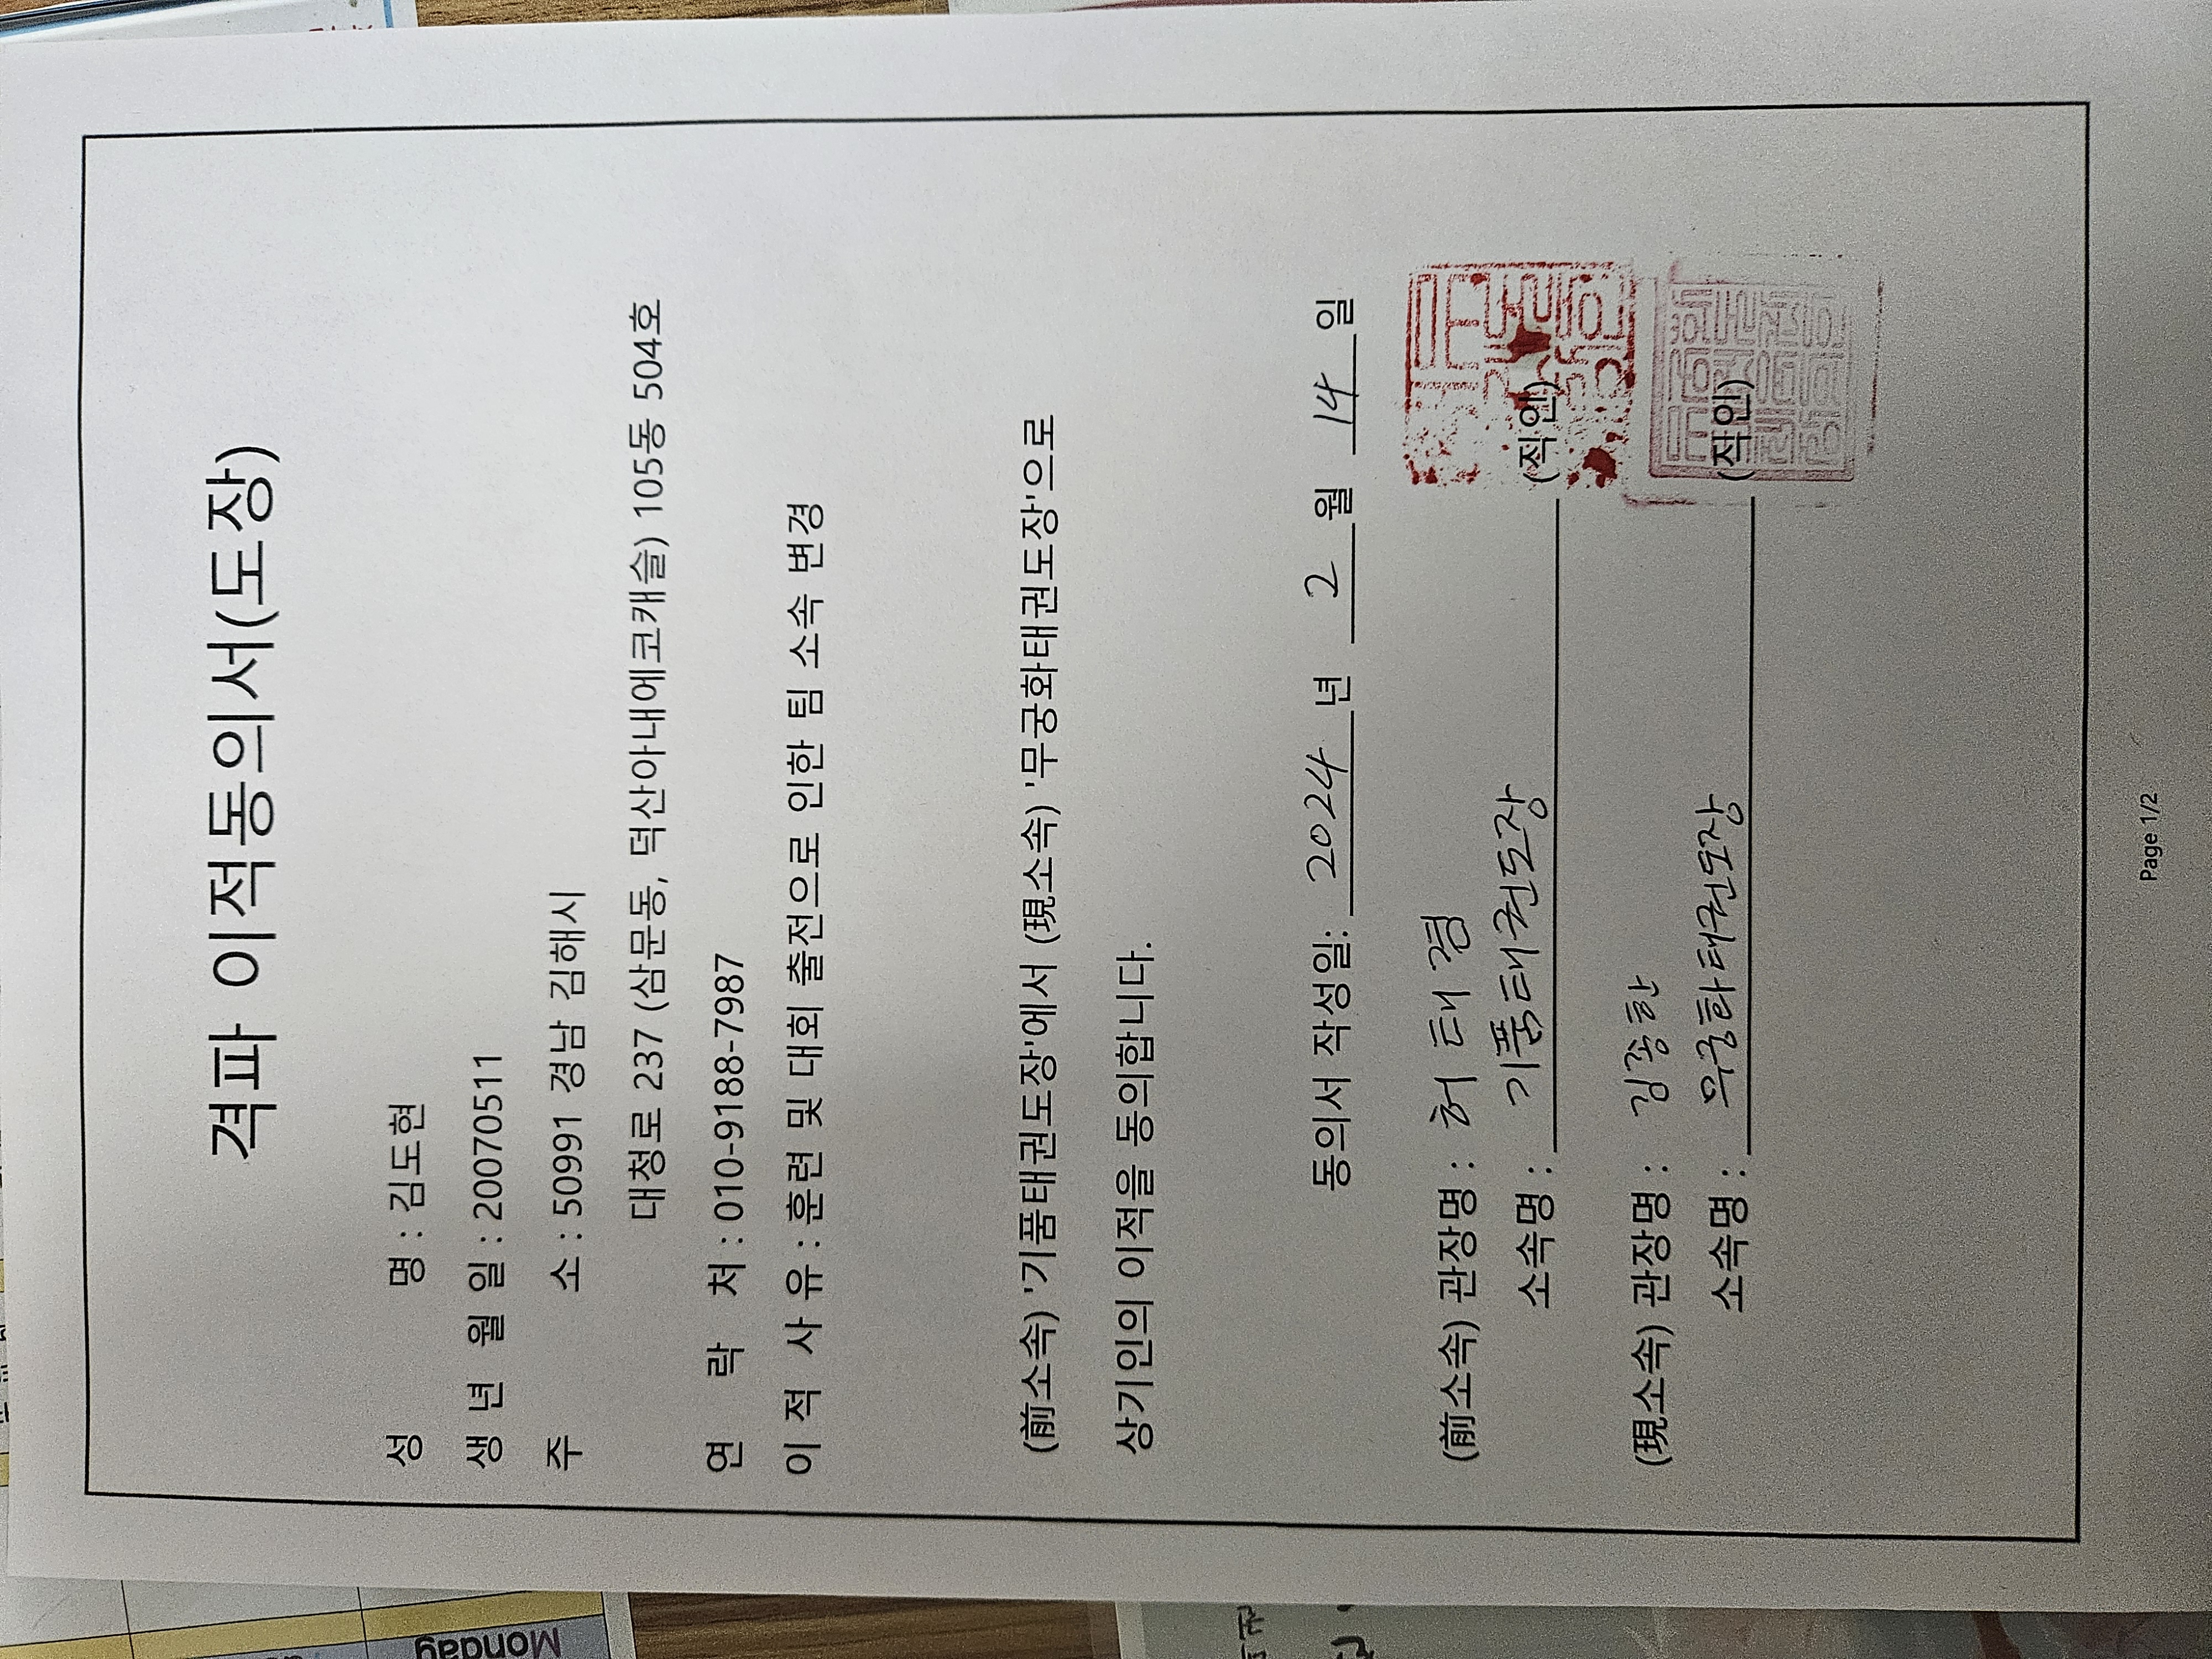 격파 이적동의서(도장)
성 명 : 김도현
생 년 월 일 : 20070511
주 소 : 50991 경남 김해시
대청로 237 (삼문동, 덕산아내에코캐슬) 105동 504호
연 락 처 : 010-9188-7987
이 적 사 유 : 훈련 및 대회 출전으로 인한 팀 소속 변경
(前소속) '기품태권도장'에서 (現소속) '무궁화태권도장'으로
상기인의 이적을 동의합니다.
동의서 작성일: 2024 년 2 월 14 일
(前소속) 관장명 : 허 태 겸
소속명 : 기품태권도장 (직인)
(現소속) 관장명 : 김종한
소속명 : 무궁화태권도장 (직인)
Page 1/2
Monday